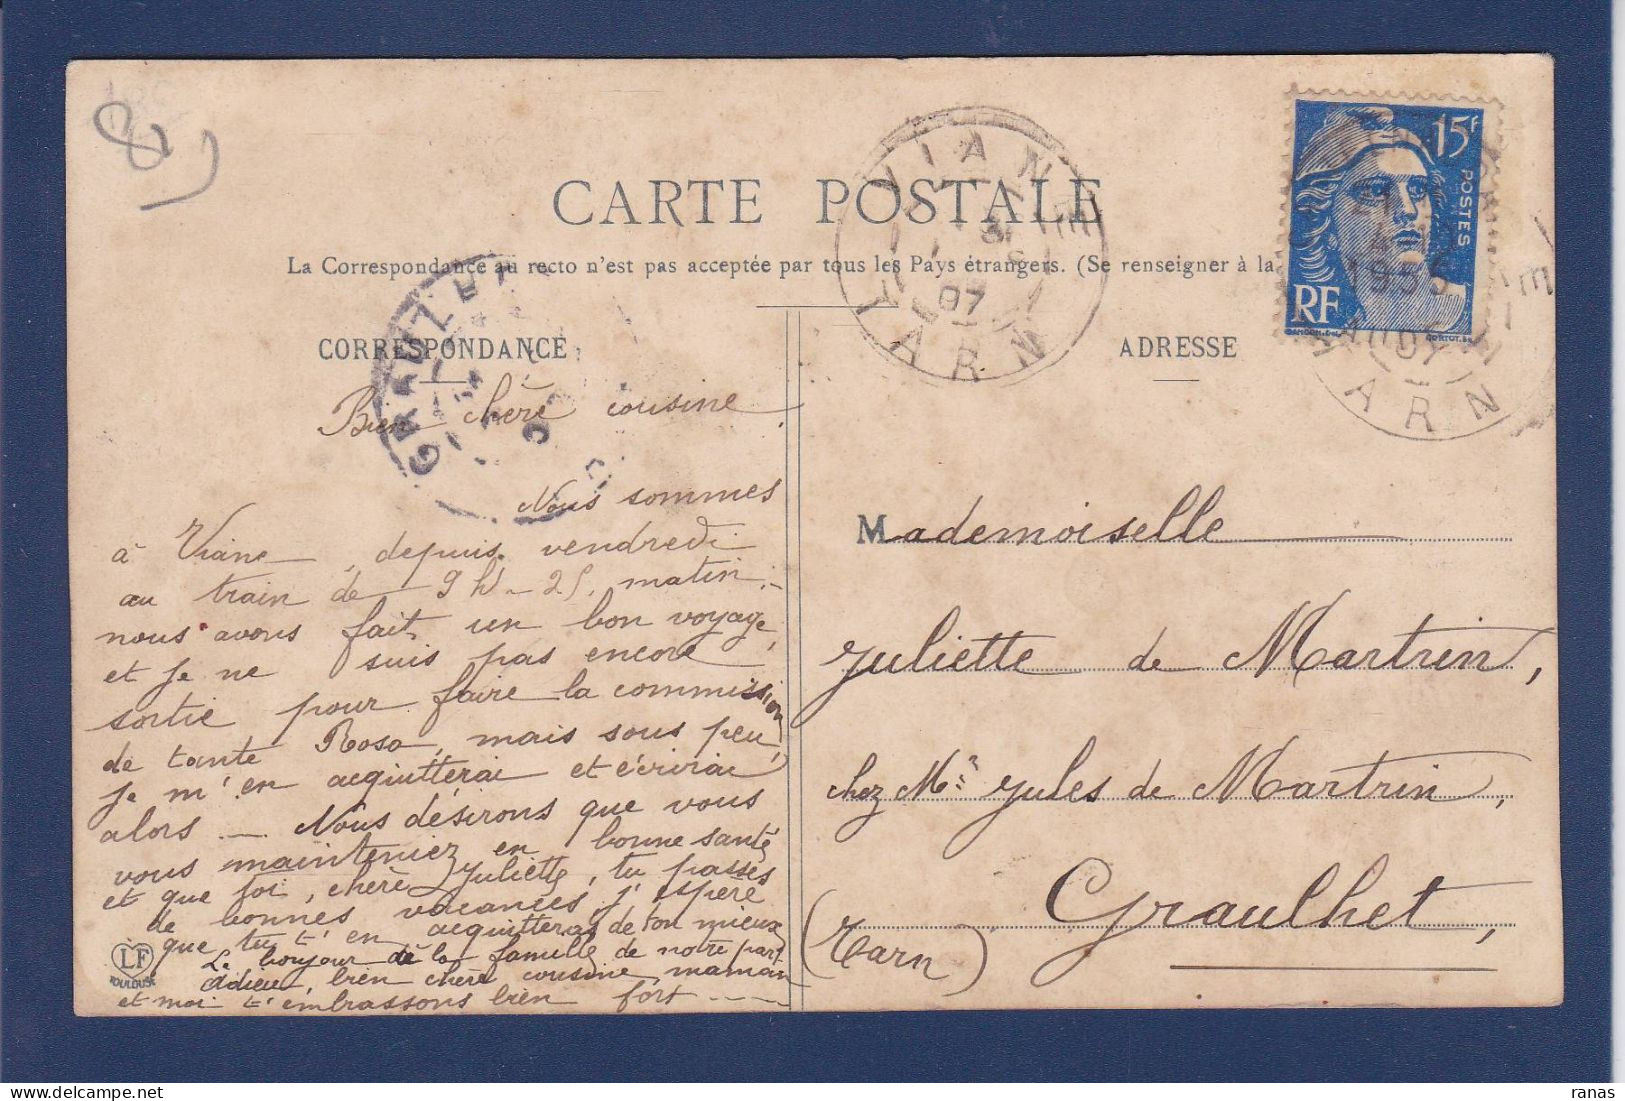 CARTE POSTALE
La Correspondance au recto n'est pas acceptée par tous les Pays étrangers. (Se renseigner à la
CORRESPONDANCE
ADRESSE
VIANE
31
07
TARN
GRAULHET
15f
POSTES
RF
1955
TARN
Bien chère cousine
Nous sommes
à Viane, depuis vendredi
au train de 9 h - 25, matin;
nous avons fait un bon voyage,
et je ne suis pas encore
sortie pour faire la commission
de tante Rosa, mais sous peu,
je m'en acquitterai et écrirai
alors. — Nous désirons que vous
vous mainteniez en bonne santé
et que toi, chère Juliette, tu passes
de bonnes vacances, j'espère
que tu t'en acquitteras de ton mieux
Le bonjour de la famille de notre part
Adieu, bien chère cousine, maman
et moi t'embrassons bien fort ----
LF
TOULOUSE
Mademoiselle
Juliette de Martrin,
chez Mr Jules de Martrin,
Graulhet,
(Tarn)
ranas